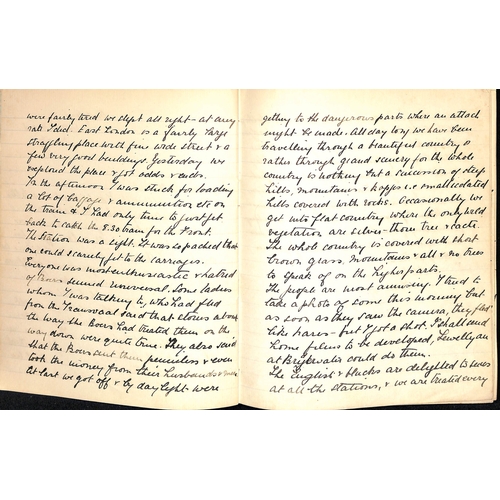 were fairly tired we slept all right – at any
rate I did. East London is a fairly large
straggling place with fine wide street & a
few very good buildings. Yesterday we
explored the place & got odds & ends.
In the afternoon I was stuck for loading
a lot of baggage & ammunition etc on
the train & I had only time to just get
back to catch the 8.30 train for the Front.
The Station was a sight. It was so packed that
one could scarcely get to the carriages.
Everyone was most enthusiastic & hatred
of Boers seemed universal. Some ladies
whom I was talking to, who had fled
from the Transvaal said that stories about
the way the Boers had treated them on the
way down were quite true. They also said
that the Boers sent them penniless & even
took the money from their husbands &
At last we got off & by day light were
getting to the dangerous parts where an attack
might be made. All day long we have been
travelling through a beautiful country or
rather through grand scenery for the whole
country is nothing but a succession of steep
hills, mountains & kopjes i.e. small isolated
hills covered with rocks. Occasionally we
get into flat country where the only wild
vegetation are silver-thorn tree & cacti.
The whole country is covered with that
brown grass, mountains & all & no trees
to speak of on the higher parts.
The people are most amusing. I tried to
take a photo of some this morning but
as soon as they saw the camera, they fled
like hares – but I got a shot. I shall send
home films to be developed, Llewellyn
at Bridgwater could do them.
The English & blacks are delighted to see us
at all the stations, & we are treated every